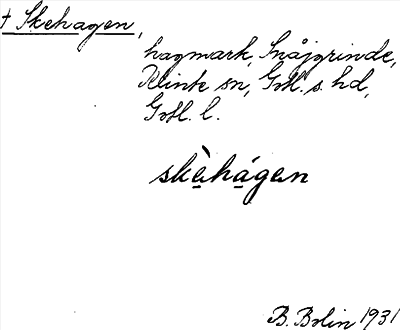 † Skehagen,
hagmark, Snäjgrinde,
Klinte sn, Gotl. s. hd,
Gotl. l.
skèhágen
B. Bolin 1931